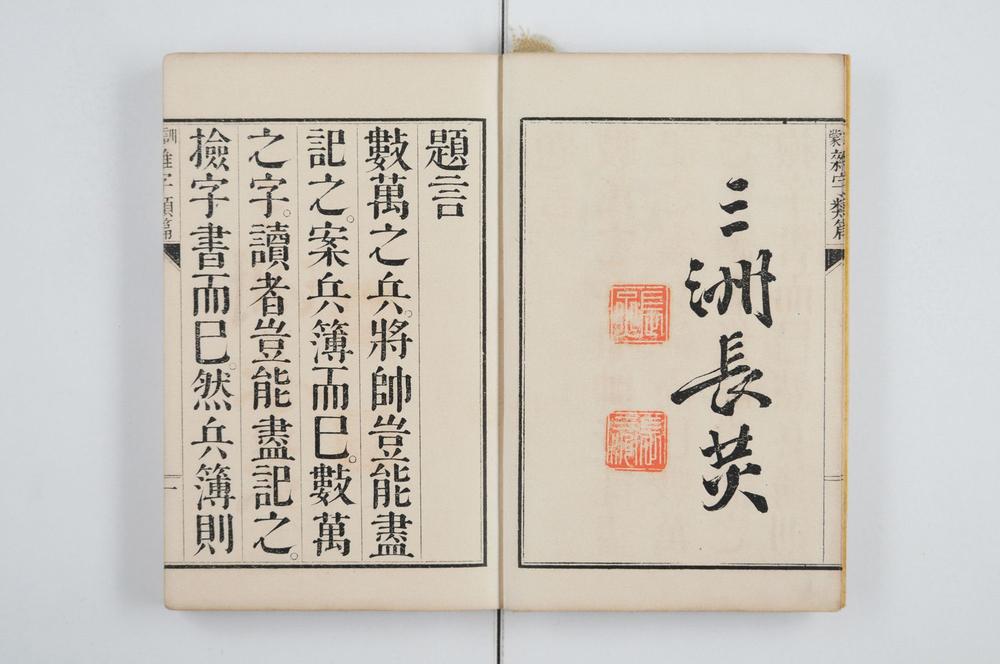 三洲長炗
題言
數萬之兵。將帥豈能盡
記之。案兵簿而已。數萬
之字。讀者豈能盡記之。
撿字書而已。然兵簿則
雜字類篇
一